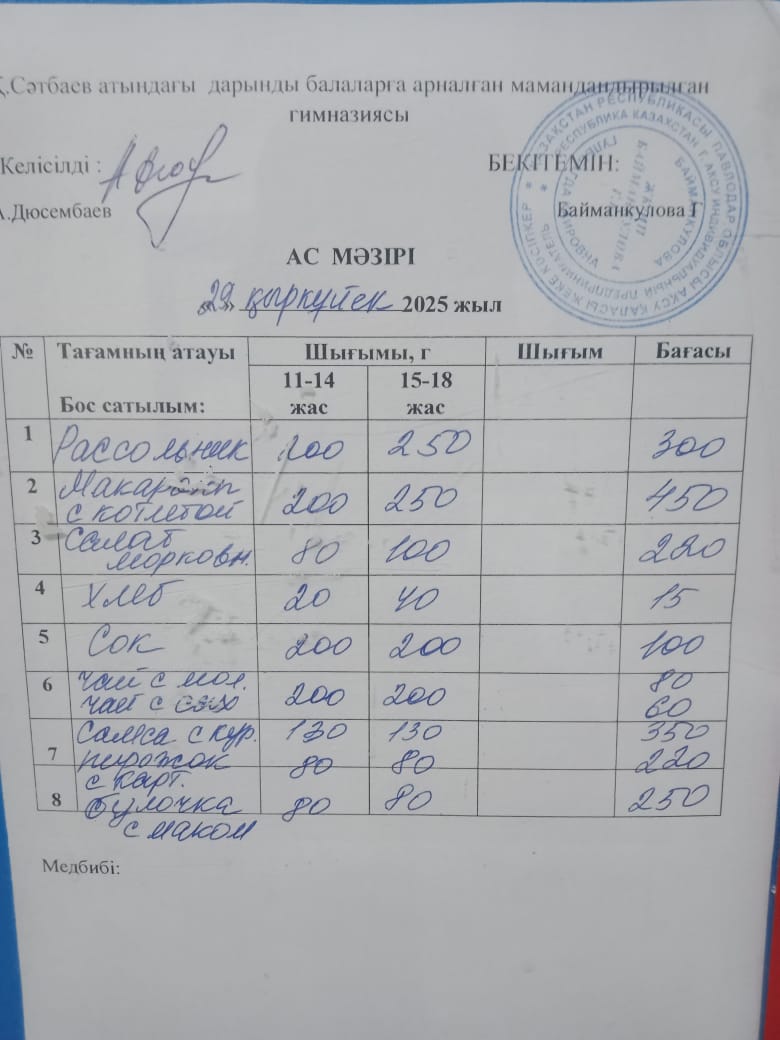 Қ.Сәтбаев атындағы дарынды балаларға арналған мамандандырылған
гимназиясы
Келісілді :
БЕКІТЕМІН:
А.Дюсембаев
Байманкулова Г
АС МӘЗІРІ
«29» қыркүйек 2025 жыл
№ Тағамның атауы Шығымы, г Шығым Бағасы
Бос сатылым: 11-14 жас 15-18 жас
1 Рассольник 200 250 300
2 Макароны
с котлетой 200 250 450
3 Салат
морковн. 80 100 220
4 Хлеб 20 40 15
5 Сок 200 200 100
6 чай с мол. 80
чай с сах 200 200 60
Самса с кур. 130 130 350
7 пирожок 80 80 220
с карт.
8 булочка 80 80 250
с маком
Медбибі:
ҚАЗАҚСТАН РЕСПУБЛИКАСЫ ПАВЛОДАР ОБЛЫСЫ АҚСУ ҚАЛАСЫ ЖЕКЕ КӘСІПКЕР
РЕСПУБЛИКА КАЗАХСТАН Г. АКСУ ИНДИВИДУАЛЬНЫЙ ПРЕДПРИНИМАТЕЛЬ
БАЙМАНКУЛОВА